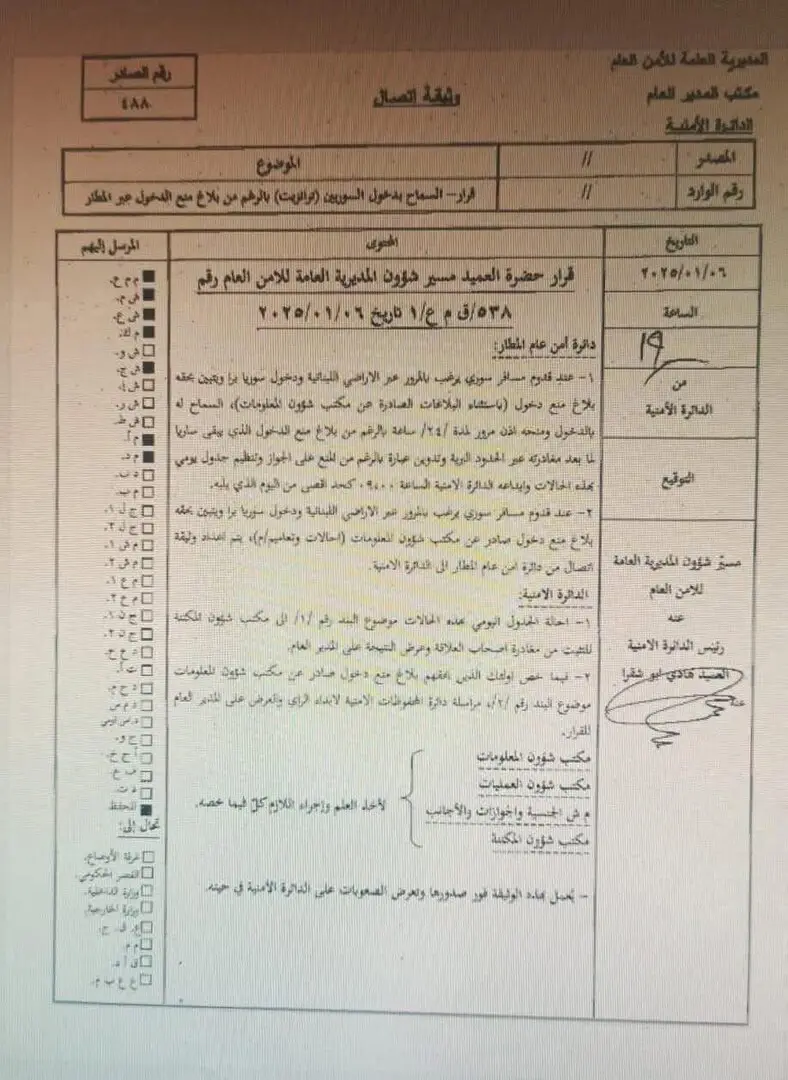 المديرية العامة للأمن العام
مكتب المدير العام
الدائرة الأمنية
وثيقة إتصال
رقم الصادر
٤٨٨
المصدر
//
الموضوع
رقم الوارد
//
قرار – السماح بدخول السوريين (ترانزيت) بالرغم من بلاغ منع الدخول عبر المطار
التاريخ
٢٠٢٥/٠١/٠٦
الساعة
19
من
الدائرة الأمنية
التوقيع
مسيّر شؤون المديرية العامة
للامن العام
عنه
رئيس الدائرة الامنية
العميد هادي ابو شقرا
عنه
المحتوى
قرار حضرة العميد مسير شؤون المديرية العامة للامن العام رقم
٥٣٨/ق م ع/١ تاريخ ٢٠٢٥/٠١/٠٦
دائرة أمن عام المطار:
١- عند قدوم مسافر سوري يرغب بالمرور عبر الاراضي اللبنانية ودخول سوريا برا ويتبين بحقه
بلاغ منع دخول (باستثناء البلاغات الصادرة عن مكتب شؤون المعلومات)، السماح له
بالدخول ومنحه اذن مرور لمدة /٢٤/ ساعة بالرغم من بلاغ منع الدخول الذي يبقى ساريا
لما بعد مغادرته عبر الحدود البرية وتدوين عبارة بالرغم من المنع على الجواز وتنظيم جدول يومي
بهذه الحالات وايداعه الدائرة الامنية الساعة ٠٩،٠٠ كحد اقصى من اليوم الذي يليه.
٢- عند قدوم مسافر سوري يرغب بالمرور عبر الاراضي اللبنانية ودخول سوريا برا ويتبين بحقه
بلاغ منع دخول صادر عن مكتب شؤون المعلومات (احالات وتعاميم/م)، يتم اعداد وثيقة
اتصال من دائرة امن عام المطار الى الدائرة الامنية.
الدائرة الامنية:
١- احالة الجدول اليومي بهذه الحالات موضوع البند رقم /١/ الى مكتب شؤون المكننة
للتثبت من مغادرة اصحاب العلاقة وعرض النتيجة على المدير العام.
٢- فيما خص اولئك الذين بحقهم بلاغ منع دخول صادر عن مكتب شؤون المعلومات
موضوع البند رقم /٢/، مراسلة دائرة المحفوظات الامنية لابداء الراي والعرض على المدير العام
للقرار.
مكتب شؤون المعلومات
مكتب شؤون العمليات
م ش الجنسية والجوازات والأجانب
مكتب شؤون المكننة
لأخذ العلم وإجراء اللازم كلّ فيما خصه.
– يُعمل بهذه الوثيقة فور صدورها وتعرض الصعوبات على الدائرة الأمنية في حينه.
المرسل إليهم
م م ع.
ش م.
ش ع.
م ك.
ش و.
ش ج.
ش ر.
ش ط.
م أ.
م د.
د ب.
م ب.
ج ل ١.
ج ل ٢.
م ش ١.
م ش ٢.
م ع ١.
م ع ٢.
ج ن ١.
ج ن ٢.
د ع ج.
د ح م.
ج و.
أ ح خ.
د ت.
للحفظ
تحال إلى:
غرفة الأوضاع.
القصر الحكومي.
وزارة الداخلية.
وزارة الخارجية.
م م.
ق أ د.
ع ع ب م.